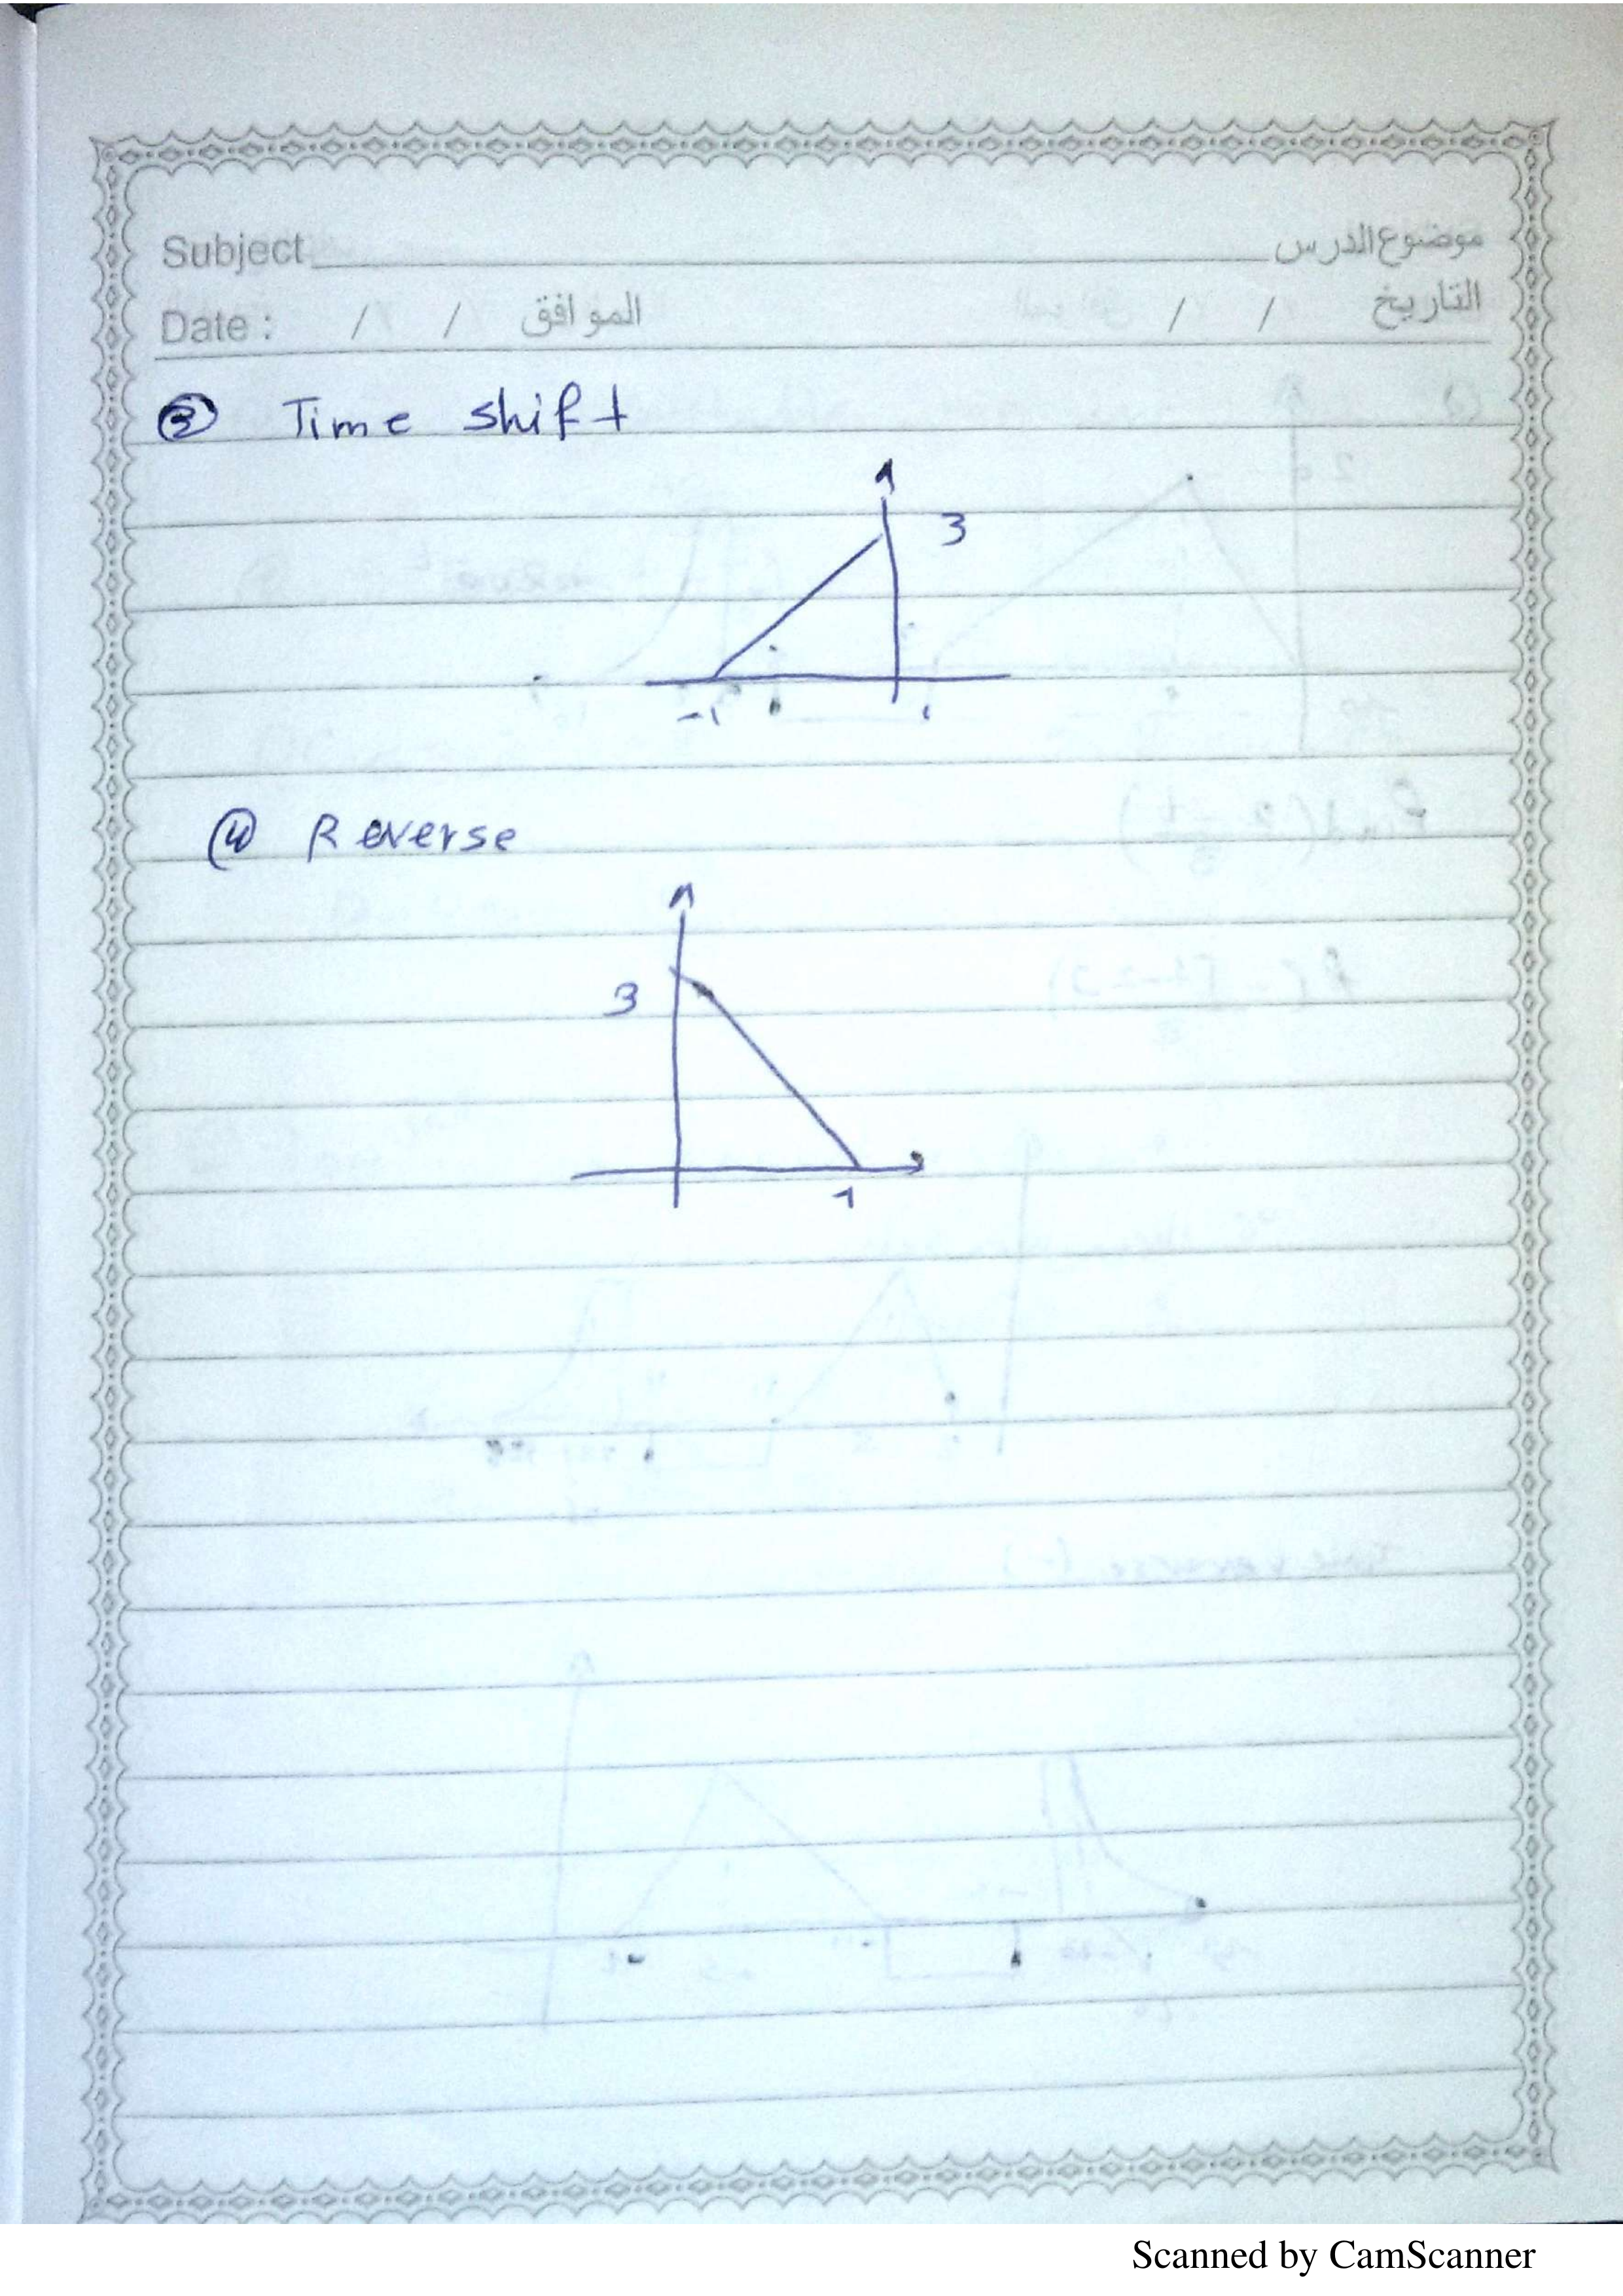 Subject موضوع الدرس
Date : / / الموافق / / التاريخ
③ Time shift
3
-1
④ Reverse
3
1
Scanned by CamScanner